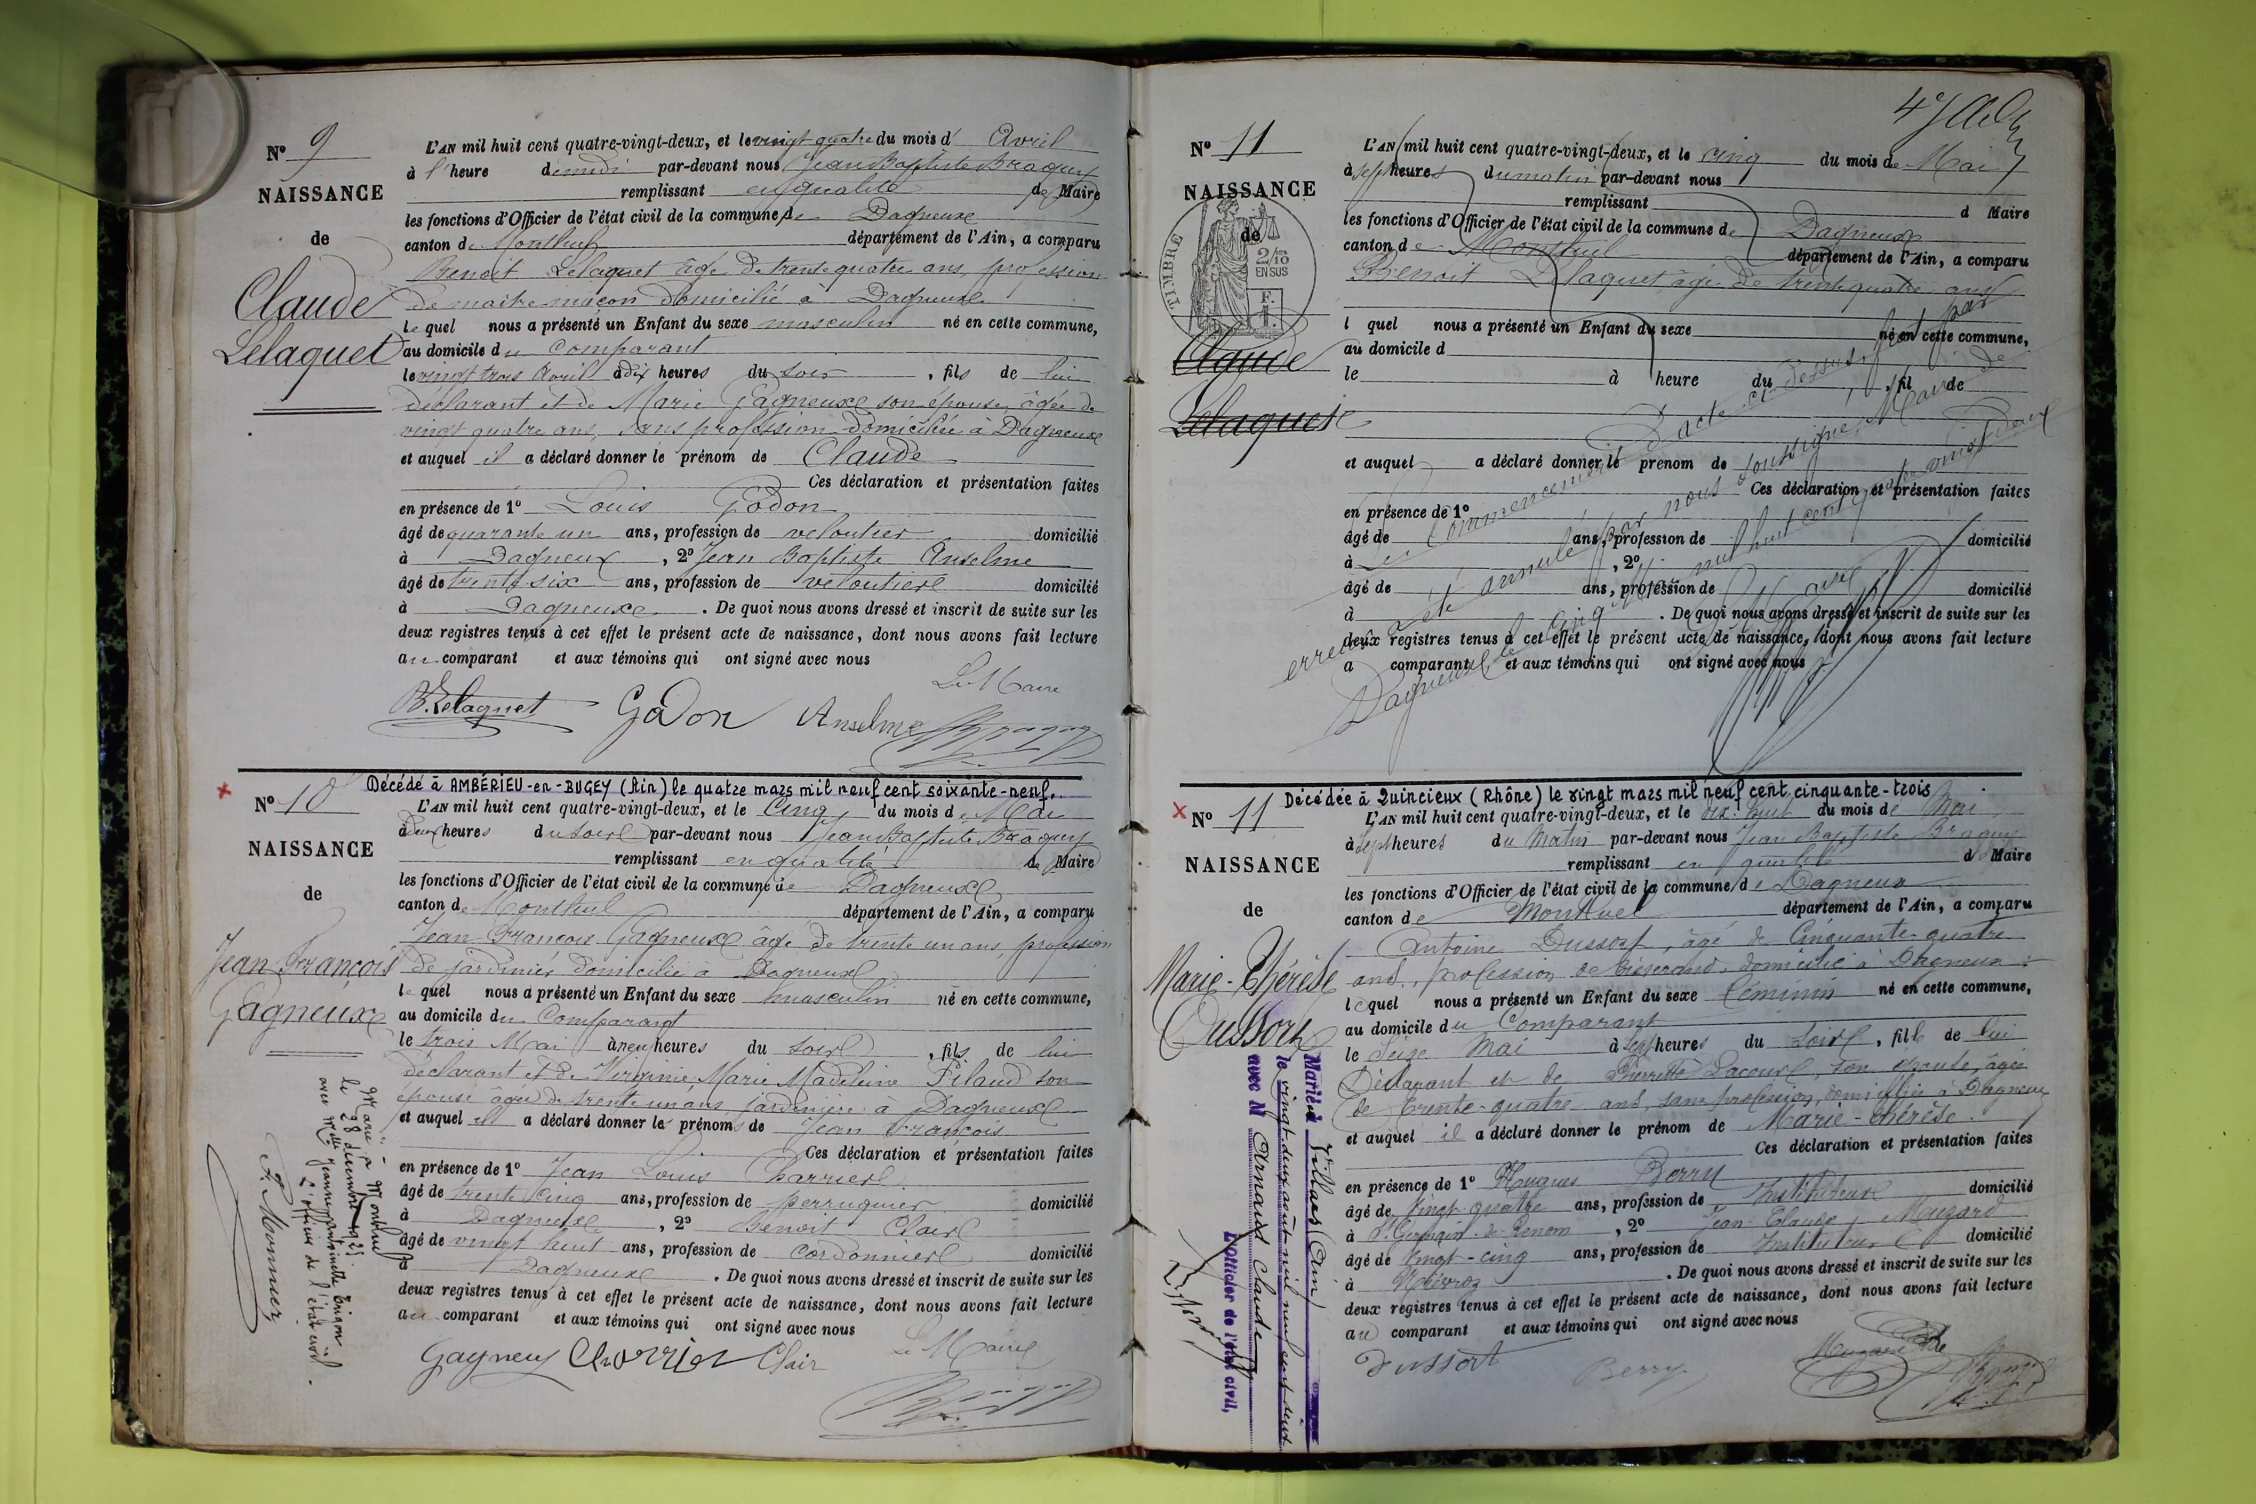 N° 9
NAISSANCE
de
Claude
Lelaquet
L'AN mil huit cent quatre-vingt-deux, et le vingt quatre du mois d' Avril
à l'heure de midi par-devant nous Jean Baptiste Braquy
remplissant en qualité de Maire
les fonctions d'Officier de l'état civil de la commune de Dagneux
canton de Montluel département de l'Ain, a comparu
Benoit Lelaquet âgé de trente quatre ans, profession
de maitre maçon domicilié à Dagneux
lequel nous a présenté un Enfant du sexe masculin né en cette commune,
au domicile du comparant
le vingt trois Avril à dix heures du soir , fils de lui
déclarant et de Marie Gagneux son épouse, âgée de
vingt quatre ans, sans profession domiciliée à Dagneux
et auquel il a déclaré donner le prénom de Claude
Ces déclaration et présentation faites
en présence de 1° Louis Godon
âgé de quarante un ans, profession de veloutier domicilié
à Dagneux , 2° Jean Baptiste Anselme
âgé de trente six ans, profession de veloutier domicilié
à Dagneux . De quoi nous avons dressé et inscrit de suite sur les
deux registres tenus à cet effet le présent acte de naissance, dont nous avons fait lecture
au comparant et aux témoins qui ont signé avec nous
Le Maire
B. Lelaquet Godon Anselme
Décédé à AMBÉRIEU-en-BUGEY (Ain) le quatre mars mil neuf cent soixante-neuf.
N° 10
NAISSANCE
de
Jean François
Gagneux
L'AN mil huit cent quatre-vingt-deux, et le Cinq du mois de Mai
à deux heures du soir par-devant nous Jean Baptiste Braquy
remplissant en qualité de Maire
les fonctions d'Officier de l'état civil de la commune de Dagneux
canton de Montluel département de l'Ain, a comparu
Jean François Gagneux âgé de trente un ans, profession
de jardinier domicilié à Dagneux
lequel nous a présenté un Enfant du sexe masculin né en cette commune,
au domicile du Comparant
le trois Mai à neuf heures du soir , fils de lui
déclarant et de Virginie Marie Madeleine Pilaud son
épouse âgée de trente un ans, jardinière à Dagneux
et auquel il a déclaré donner les prénoms de Jean François
Ces déclaration et présentation faites
en présence de 1° Jean Louis Charrier
âgé de trente cinq ans, profession de perruquier domicilié
à Dagneux , 2° Benoit Clair
âgé de vingt huit ans, profession de cordonnier domicilié
à Dagneux . De quoi nous avons dressé et inscrit de suite sur les
deux registres tenus à cet effet le présent acte de naissance, dont nous avons fait lecture
au comparant et aux témoins qui ont signé avec nous
Le Maire
Gagneux Charrier Clair
Marié à Montluel
le 28 décembre 1921
avec Melle Jeanne Antoinette
L'officier de l'état civil.
F. Monnier
N° 11
NAISSANCE
de
TIMBRE
2/10
EN SUS
F.
1.
Claude
Lelaquet
L'AN mil huit cent quatre-vingt-deux, et le cinq du mois de Mai
à sept heures du matin par-devant nous
remplissant d Maire
les fonctions d'Officier de l'état civil de la commune de Dagneux
canton de Montluel département de l'Ain, a comparu
Benoit Lelaquet âgé de trente quatre ans
l quel nous a présenté un Enfant du sexe né en cette commune,
au domicile d
le à heure du , fil de
et auquel a déclaré donner le prenom de
Ces déclaration et présentation faites
en présence de 1°
âgé de ans, profession de domicilié
à , 2°
âgé de ans, profession de domicilié
à . De quoi nous avons dressé et inscrit de suite sur les
deux registres tenus à cet effet le présent acte de naissance, dont nous avons fait lecture
a comparant et aux témoins qui ont signé avec nous
Le Commencement d'acte ci dessus fait par
erreur a été annulé par nous soussigné, Maire de
Dagneux le cinq Mai mil huit cent quatre vingt deux
Le Maire
Décédée à Quincieux (Rhône) le vingt mars mil neuf cent cinquante-trois
N° 11
NAISSANCE
de
Marie-Thérèse
Dussort
L'AN mil huit cent quatre-vingt-deux, et le dix-huit du mois de Mai
à sept heures du Matin par-devant nous Jean Baptiste Braquy
remplissant en qualité de Maire
les fonctions d'Officier de l'état civil de la commune de Dagneux
canton de Montluel département de l'Ain, a comparu
Antoine Dussort, âgé de Cinquante-quatre
ans, profession de tisserand, domicilié à Dagneux
lequel nous a présenté un Enfant du sexe féminin né en cette commune,
au domicile du Comparant
le Seize Mai à sept heures du Soir , fille de lui
Déclarant et de Pierrette Lacour, son épouse, âgée
de trente-quatre ans, sans profession, domiciliée à Dagneux
et auquel il a déclaré donner le prénom de Marie-thérèse
Ces déclaration et présentation faites
en présence de 1° Hugues Berry
âgé de vingt-quatre ans, profession de Instituteur domicilié
à St Germain-de-Renom , 2° Jean-Claude Muzard
âgé de vingt-cinq ans, profession de Instituteur domicilié
à Niévroz . De quoi nous avons dressé et inscrit de suite sur les
deux registres tenus à cet effet le présent acte de naissance, dont nous avons fait lecture
au comparant et aux témoins qui ont signé avec nous
Dussort Berry Muzard
Marié à Villars (Ain)
le vingt-deux août mil neuf cent deux
avec M Arnaud Claude
L'officier de l'état civil,